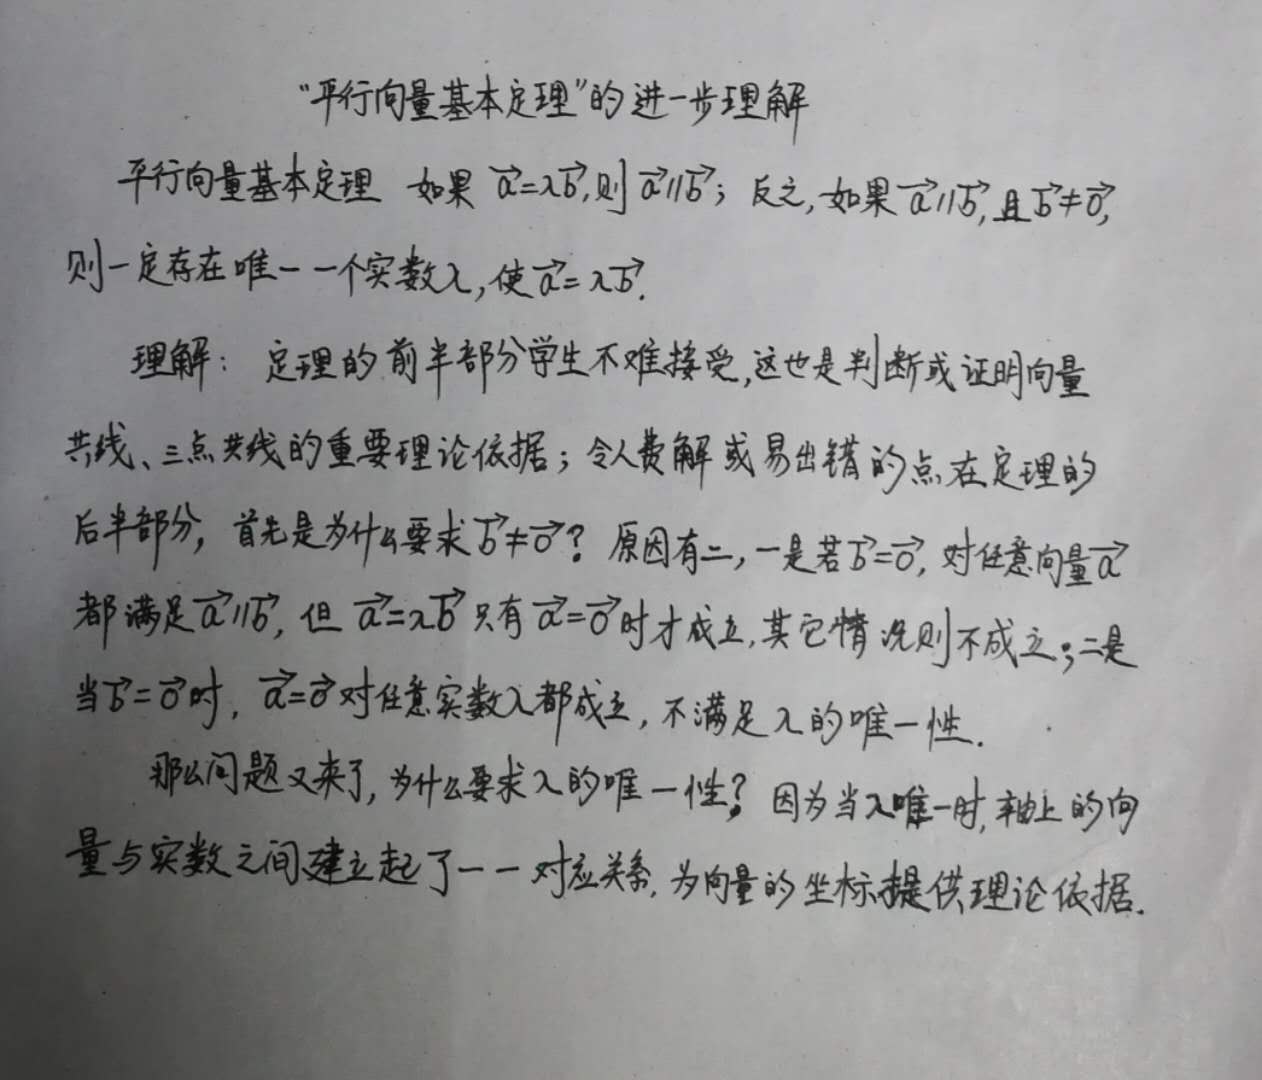 “平行向量基本定理”的进一步理解
平行向量基本定理 如果 a⃗=λb⃗,则a⃗∥b⃗; 反之,如果a⃗∥b⃗,且b⃗≠0⃗,
则一定存在唯一一个实数λ,使a⃗=λb⃗.
理解: 定理的前半部分学生不难接受,这也是判断或证明向量
共线、三点共线的重要理论依据;令人费解或易出错的点在定理的
后半部分,首先是为什么要求b⃗≠0⃗?原因有二,一是若b⃗=0⃗,对任意向量a⃗
都满足a⃗∥b⃗,但a⃗=λb⃗只有a⃗=0⃗时才成立,其它情况则不成立;二是
当b⃗=0⃗时,a⃗=0⃗对任意实数λ都成立,不满足λ的唯一性.
那么问题又来了,为什么要求λ的唯一性?因为当λ唯一时,轴上的向
量与实数之间建立起了一一对应关系,为向量的坐标提供理论依据.